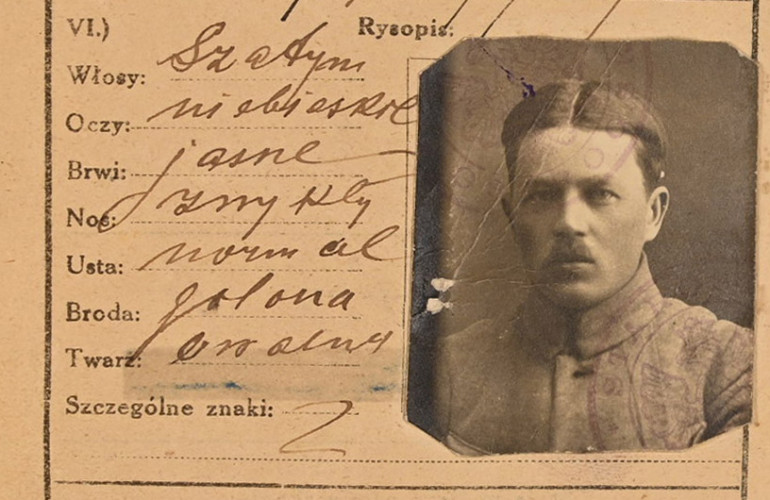 VI.) Rysopis:
Włosy: Szatyn
Oczy: niebieskie
Brwi: jasne
Nos: zwykły
Usta: normal
Broda: golona
Twarz: owalna
Szczególne znaki: